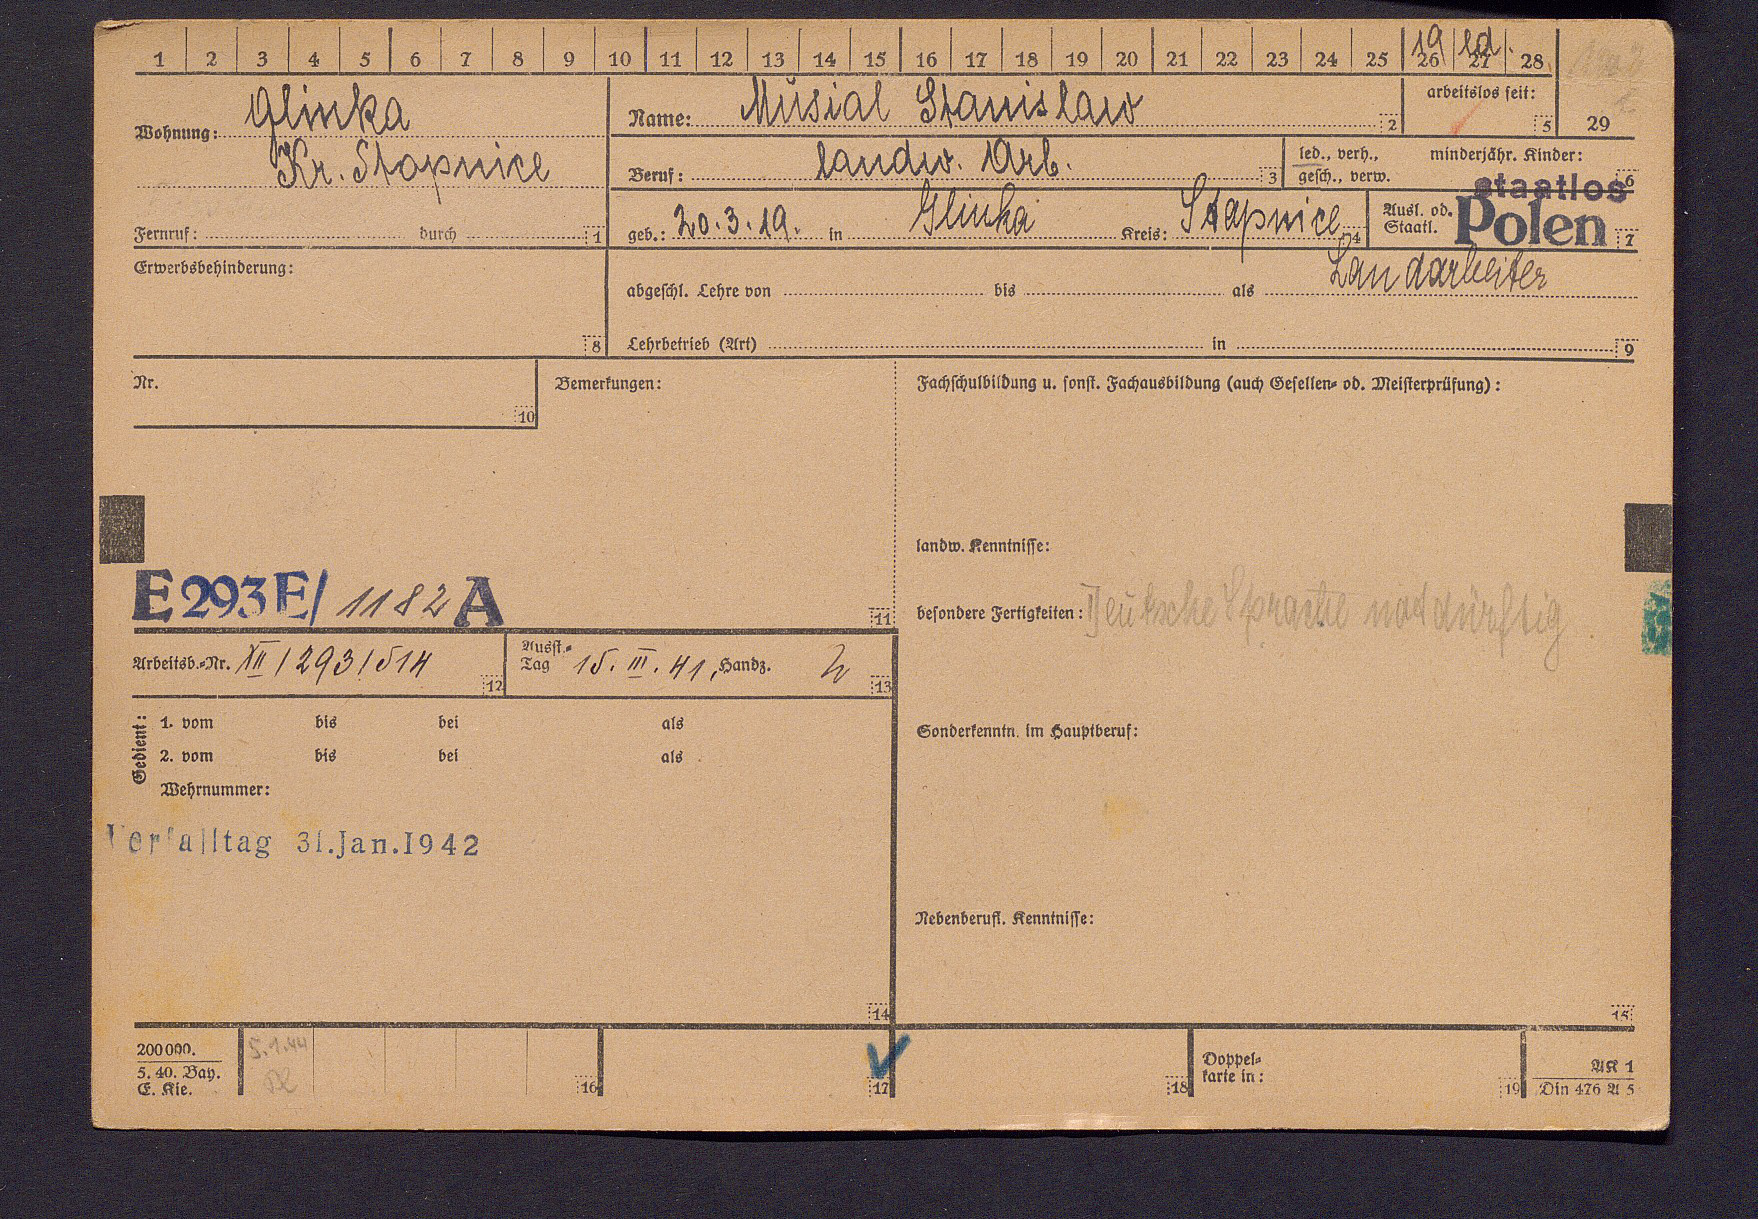 1 2 3 4 5 6 7 8 9 10 11 12 13 14 15 16 17 18 19 20 21 22 23 24 25 26 27 28
19 led.
Wohnung: Glinka
Kr. Stopnice
Fernruf: durch 1
Name: Musial Stanislaw 2
arbeitslos seit: 5
29
Beruf: landw. Arb. 3
led., verh., gesch., verw.
minderjähr. Kinder: 6
geb.: 20.3.19. in Glinka Kreis: Stopnice 4
Ausl. od. Staatl. staatlos Polen 7
Erwerbsbehinderung: 8
abgeschl. Lehre von bis als Landarbeiter
Lehrbetrieb (Art) in 9
Nr. 10
Bemerkungen:
E 293 E/ 1182 A 11
Fachschulbildung u. sonst. Fachausbildung (auch Gesellen- od. Meisterprüfung):
landw. Kenntnisse:
besondere Fertigkeiten: Deutsche Sprache notdürftig
Arbeitsb.-Nr. XII/293/514 12
Ausst.-Tag 15. III. 41, Handz. 13
Gedient: 1. vom bis bei als
2. vom bis bei als
Wehrnummer:
Verfalltag 31.Jan.1942
14
Sonderkenntn. im Hauptberuf:
Nebenberufl. Kenntnisse:
15
200000.
5. 40. Bay.
E. Kie.
5.1.44
16 17 18
Doppel-
karte in: 19
AK 1
Din 476 A 5